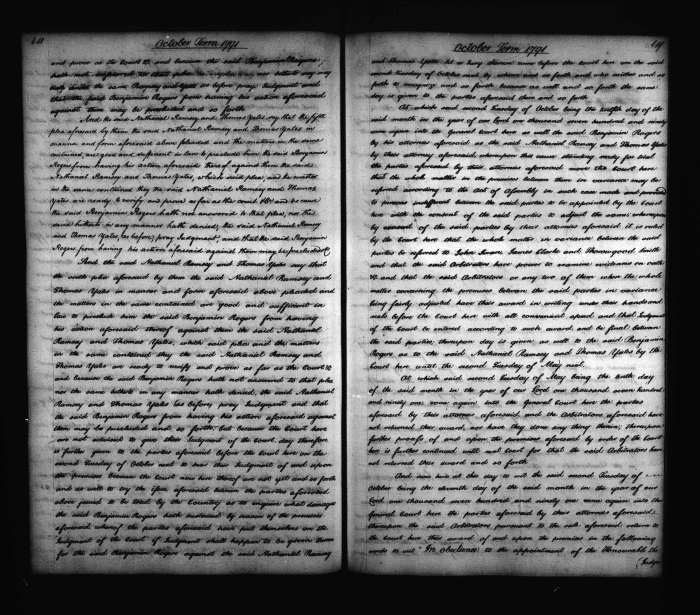 October Term 1791
and prove as the Court &c and because the said Benjamin Rogers
hath not answered to that plea
the said Benjamin Rogers from having his action aforesaid
against them may be precluded and so forth
And the said Nathaniel Ramsey and Thomas Yates say that the fifth
plea aforesaid by them the said Nathaniel Ramsey and Thomas Yates in
manner and form aforesaid above pleaded and the matters in the same
contained, are good and sufficient in law to preclude him the said Benjamin
Rogers from having his action aforesaid thereof against them the said
Nathaniel Ramsey and Thomas Yates, which said plea, and the matters
in the same contained they the said Nathaniel Ramsey and Thomas
Yates are ready to verify and prove as far as the court &c and because
the said Benjamin Rogers hath not answered to that plea, nor the
same hitherto in any manner hath denied, the said Nathaniel Ramsey
and Thomas Yates (as before) pray Judgment, and that the said Benjamin
Rogers from having his action aforesaid against them may be precluded &c
And the said Nathaniel Ramsey and Thomas Yates say that
the sixth plea aforesaid by them the said Nathaniel Ramsey and
Thomas Yates in manner and form aforesaid above pleaded and
the matters in the same contained are good and sufficient in
law to preclude him the said Benjamin Rogers from having
his action aforesaid thereof against them the said Nathaniel
Ramsey and Thomas Yates, which said plea and the matters
in the same contained they the said Nathaniel Ramsey and
Thomas Yates are ready to verify and prove as far as the Court &c
and because the said Benjamin Rogers hath not answered to that plea
nor the same hitherto in any manner hath denied, the said Nathaniel
Ramsey and Thomas Yates (as before) pray Judgment and that
the said Benjamin Rogers from having his action aforesaid against
them may be precluded and so forth, but because the Court here
are not advised to give their Judgment of the Court, day therefore
is further given to the parties aforesaid before the Court here on the
second Tuesday of October next to hear their Judgment of and upon
the premises because the Court now here thereof are not yet and so forth
and as well to try the Issue aforesaid between the parties aforesaid
above joined to be tried by the Country as to enquire what damages
the said Benjamin Rogers hath sustained by reason of the premises
aforesaid whereof the parties aforesaid have put themselves on the
Judgment of the Court if Judgment shall happen to be given thereon
for the said Benjamin Rogers against the said Nathaniel Ramsey
October Term 1791
and Thomas Yates let a Jury thereon come before the Court here on the said
second Tuesday of October next by whom and so forth and who neither and so
forth to recognize and so forth because as well and so forth the same
day is given to the parties aforesaid there and so forth
At which said second Tuesday of October being the twelfth day of the
said month in the year of our Lord one thousand seven hundred and ninety
come again into the General Court here as well the said Benjamin Rogers
by his attorney aforesaid as the said Nathaniel Ramsey and Thomas Yates
by their attorney aforesaid, whereupon this cause standing ready for trial
the parties aforesaid by their attornies aforesaid move the Court here
that the whole matter in the premises between them in variance may be
referred according to the Act of Assembly in such case made and provided
to persons indifferent between the said parties to be appointed by the Court
here with the consent of the said parties to adjust the same; whereupon
by consent of the said parties by their attornies aforesaid it is ruled
by the Court here that the whole matter in variance between the said
parties be referred to John Swan James Clarke and Thorowgood Smith
and that the said Arbitrators have power to examine evidences on oath
&c and that the said Arbitrators or any two of them when the whole
matter concerning the premises between the said parties in variance
being fairly adjusted have their award in writing under their hands and
seals before the Court here with all convenient speed and that Judgment
of the Court be entered according to such award and be final between
the said parties; thereupon day is given as well to the said Benjamin
Rogers as to the said Nathaniel Ramsey and Thomas Yates by the
Court here until the second Tuesday of May next
At which said second Tuesday of May being the tenth day
of the same month in the year of our Lord one thousand seven hundred
and ninety one come again into the General Court here the parties
aforesaid by their attornies aforesaid and the Arbitrators aforesaid have
not returned their award, nor have they done any thing therein; thereupon
further process of and upon the premises aforesaid by order of the Court
here is further continued until next Court for that the said Arbitrators have
not returned their award and so forth
And now here at this day to wit the said second Tuesday of
October being the eleventh day of the said month in the year of our
Lord one thousand seven hundred and ninety one come again into the
General Court here the parties aforesaid by their attornies aforesaid:
thereupon the said Arbitrators pursuant to the rule aforesaid return to
the Court here their award of and upon the premises in the following
words to wit "In obedience to the appointment of the Honourable the
(Judges